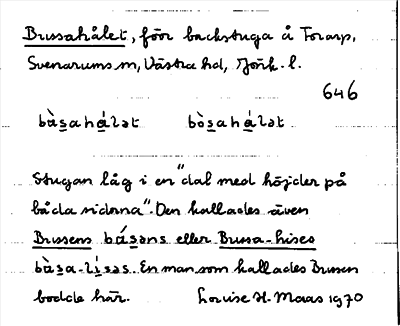 Brussahålet, förr backstuga å Torarp,
Svenarums sn, Västra hd, Jönk. l.
646
bàs̲ahá̲lət bòs̲ahá̲lət
Stugan låg i en "dal med höjder på
båda sidorna". Den kallades även
Brussens bás̲əns eller Brussa-hises
bàs̲a-lí̲səs. En man som kallades Brussen
bodde här. Louise H. Maas 1970